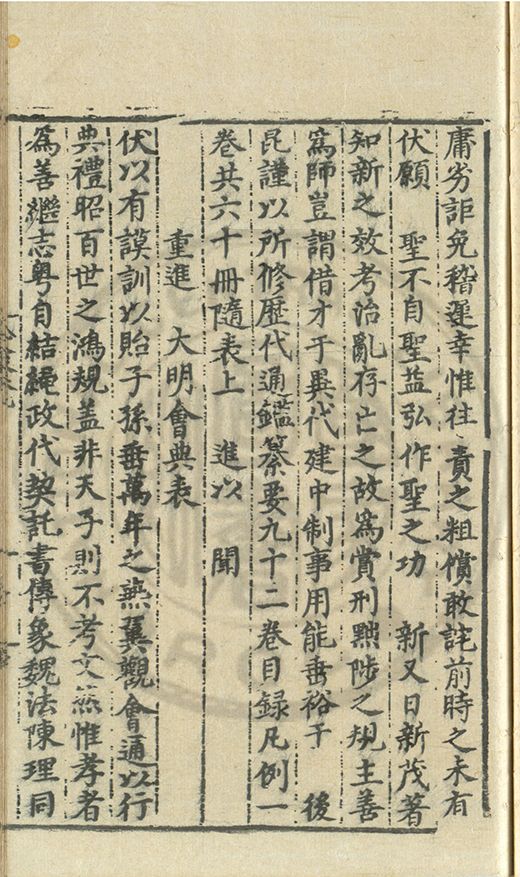 庸劣詎免稽遲幸惟往　責之粗償敢詫前時之未有
伏願　聖不自聖益弘作聖之功　新又日新茂著
知新之效考治亂存亡之故爲賞刑黜陟之規主善
爲師豈謂借才于異代建中制事用能垂裕于　後
昆謹以所修歷代通鑑纂要九十二卷目録凡例一
卷共六十冊隨表上　進以　聞
重進　大明會典表
伏以有謨訓以貽子孫垂萬年之燕翼觀會通以行
典禮昭百世之鴻規盖非天子則不考文然惟孝者
爲善繼志粤自結繩政代契託書傳象魏法陳理同